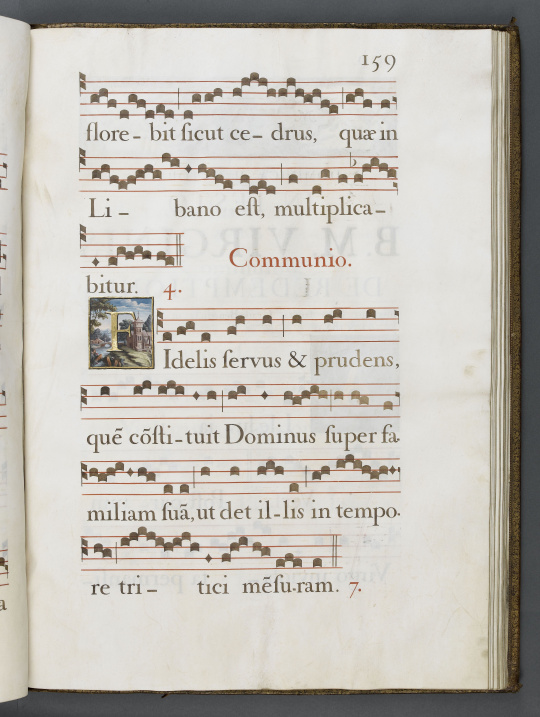 159
flore- bit ſicut ce- drus, quæ in
Li- bano eſt, multiplica-
bitur. 4. Communio.
FIdelis ſervus & prudens,
quē cōſti-tuit Dominus ſuper fa-
miliam ſuā, ut det il-lis in tempo-
re tri- tici mēſu-ram. 7.